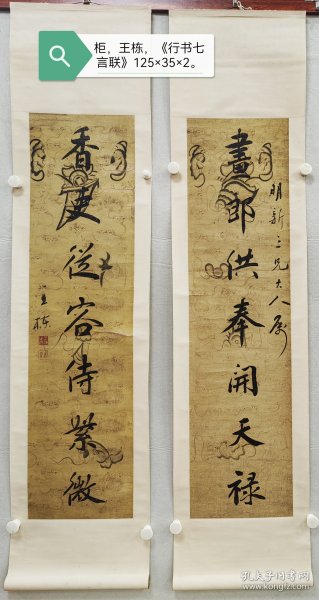 柜，王栋，《行书七
言联》125×35×2。
畫郎供奉開天禄
明新三兄大人属
香吏從容侍紫微
王栋
孔夫子旧书网